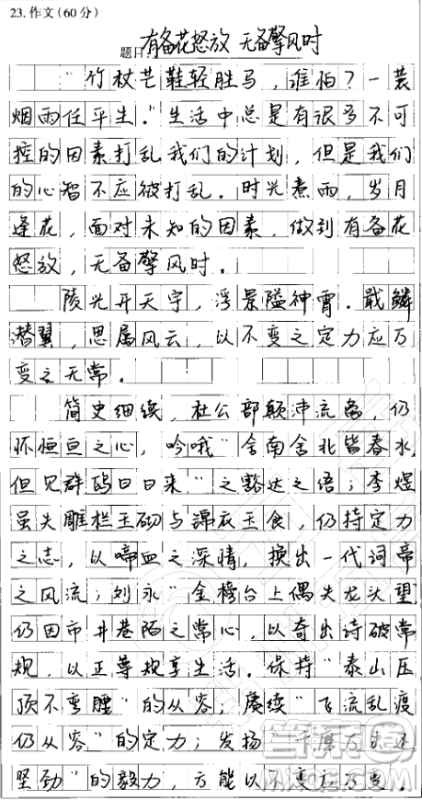 23.作文(60分)
题目: 有备花怒放 无备擎风时
"竹杖芒鞋轻胜马,谁怕?一蓑
烟雨任平生。"生活中总是有很多不可
控的因素打乱我们的计划,但是我们
的心智不应被打乱。时光煮雨,岁月
逢花,面对未知的因素,做到有备花
怒放,无备擎风时。
陵光开天宇,浮景隘神霄。戢鳞
潜翼,思属风云,以不变之定力应万
变之无常。
简史细续,杜公部颠沛流离,仍
怀恒亘之心,吟哦"舍南舍北皆春水,
但见群鸥日日来"之豁达之语;李煜
虽失雕栏玉砌与锦衣玉食,仍持定力
之志,以啼血之深情,换出一代词帝
之风流;刘永"金榜台上偶失龙头望
仍因市井巷陌之常心,以奇出诗破常
规,以正等规享生活。保持"泰山压
顶不变腰"的从容;赓续"飞流乱渡
仍从容"的定力;发扬"千磨万击还
坚劲"的毅力,方能以不变应万变。